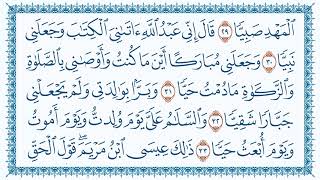 ٱلۡمَهۡدِ صَبِيّٗا ٢٩ قَالَ إِنِّي عَبۡدُ ٱللَّهِ ءَاتَىٰنِيَ ٱلۡكِتَٰبَ وَجَعَلَنِي
نَبِيّٗا ٣٠ وَجَعَلَنِي مُبَارَكًا أَيۡنَ مَا كُنتُ وَأَوۡصَٰنِي بِٱلصَّلَوٰةِ
وَٱلزَّكَوٰةِ مَا دُمۡتُ حَيّٗا ٣١ وَبَرَّۢا بِوَٰلِدَتِي وَلَمۡ يَجۡعَلۡنِي
جَبَّارٗا شَقِيّٗا ٣٢ وَٱلسَّلَٰمُ عَلَيَّ يَوۡمَ وُلِدتُّ وَيَوۡمَ أَمُوتُ
وَيَوۡمَ أُبۡعَثُ حَيّٗا ٣٣ ذَٰلِكَ عِيسَى ٱبۡنُ مَرۡيَمَۖ قَوۡلَ ٱلۡحَقِّ